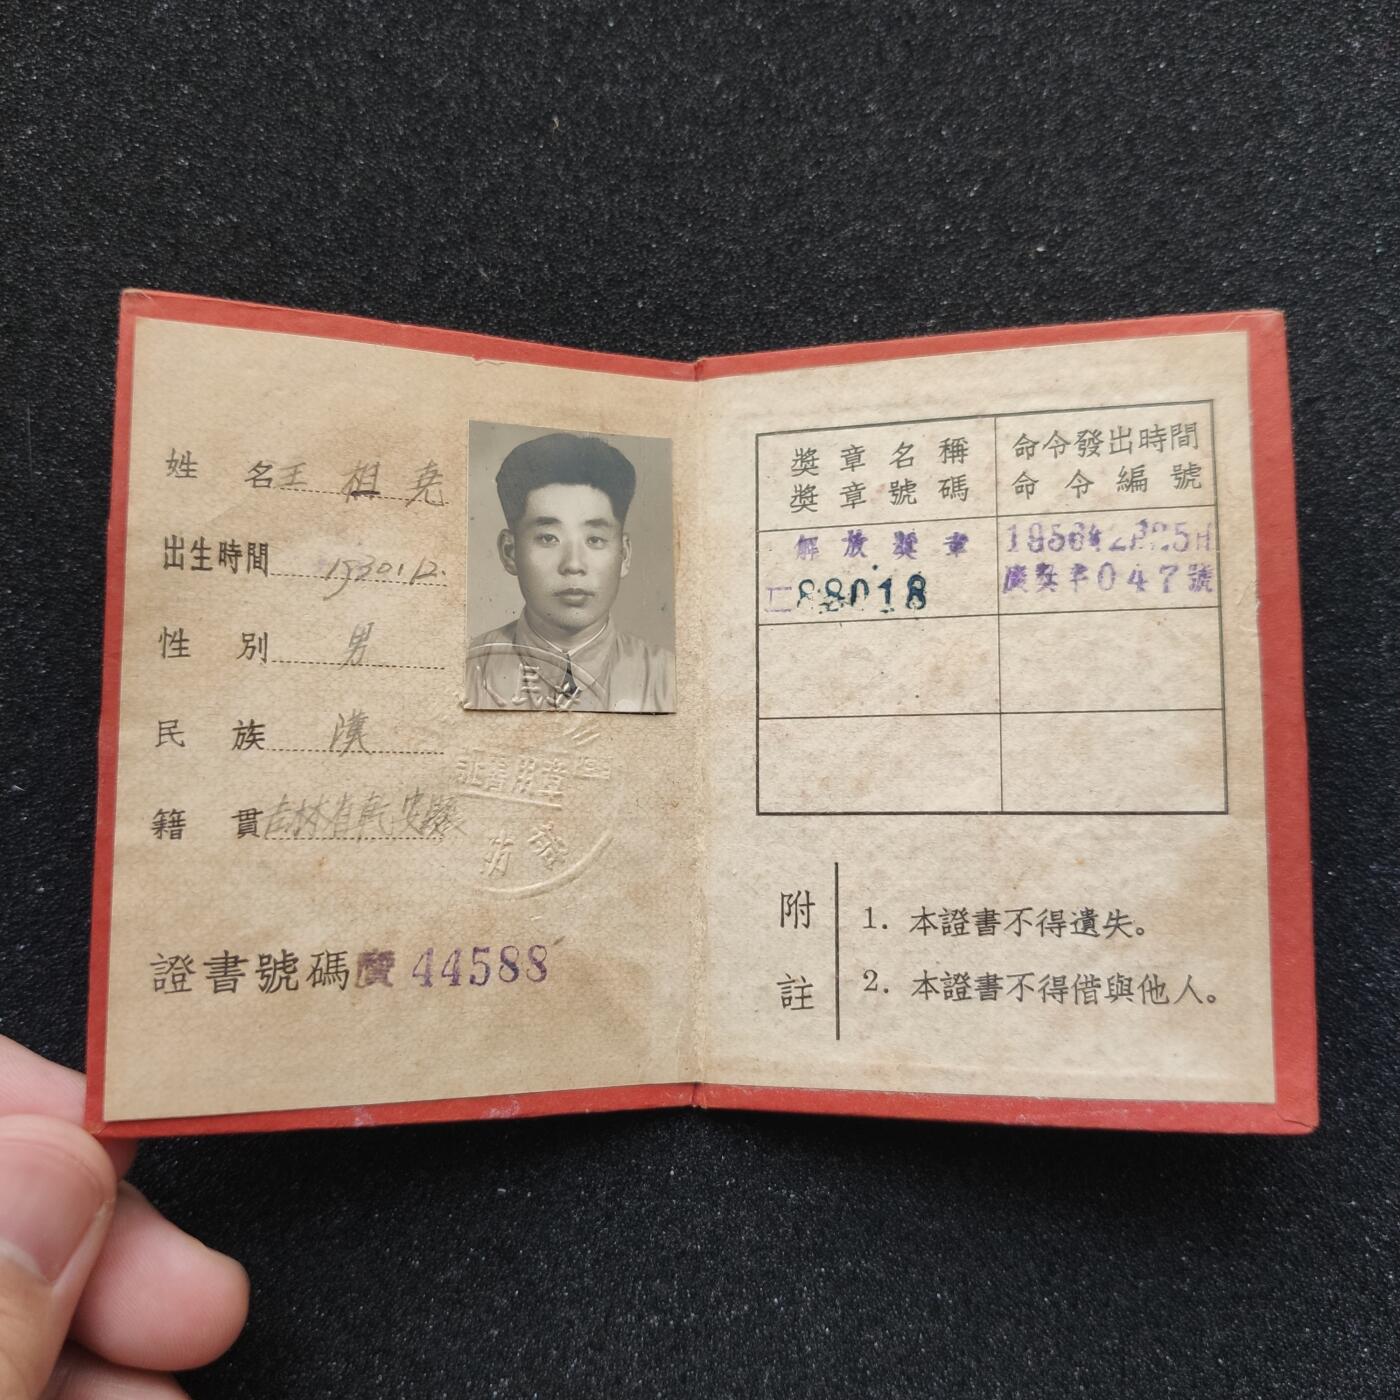 姓 名 王祖堯
出生時間 1930.12.
性 別 男
民 族 漢
籍 貫 吉林省乾安縣
證書號碼 廣 44588
人民
證書用章
獎章名稱
獎章號碼
命令發出時間
命令編號
解放獎章
88018
047號
附註
1. 本證書不得遺失。
2. 本證書不得借與他人。